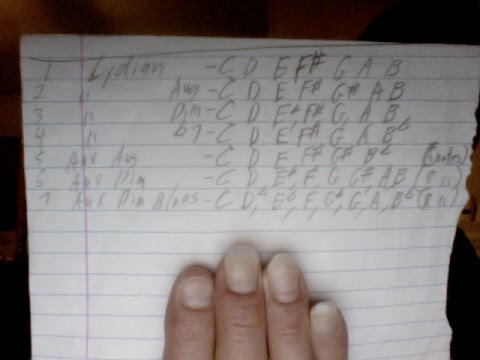 1 Lydian - C D E F# G A B
2 " Aug - C D E F# G# A B
3 " Dim - C D Eb F# G A B
4 " b7 - C D E F# G A Bb
5 Aux Aug - C D E F# G# Bb (6 notes)
6 Aux Dim - C D Eb, F, G G# A B (8 ")
7 Aux Dim Blues - C Db, Eb, E, Gb, G, A, Bb (8 ")